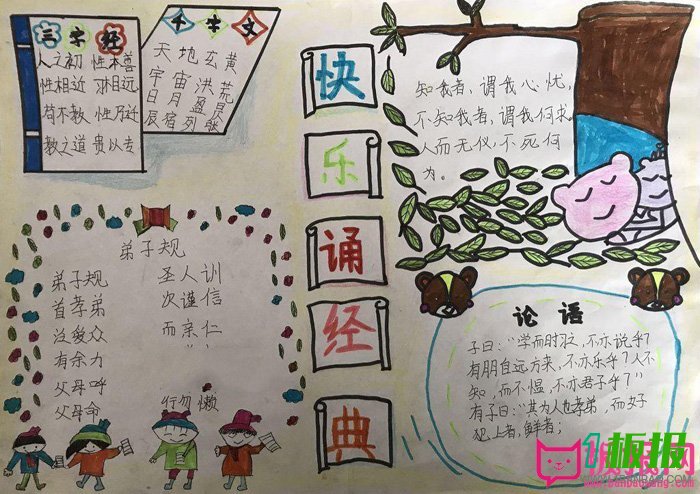 三字经
人之初 性本善
性相近 习相远
苟不教 性乃迁
教之道 贵以专
千字文
天地玄黄
宇宙洪荒
日月盈昃
辰宿列
快
乐
诵
经
典
知我者,谓我心忧,
不知我者,谓我何求。
人而无仪,不死何
为。
弟子规
弟子规 圣人训
首孝弟 次谨信
泛爱众 而亲仁
有余力
父母呼
父母命 行勿懒
论语
子曰:“学而时习之,不亦说乎?
有朋自远方来,不亦乐乎?人不
知,而不愠,不亦君子乎?”
有子曰:“其为人也孝弟,而好
犯上者,鲜者;
板报网